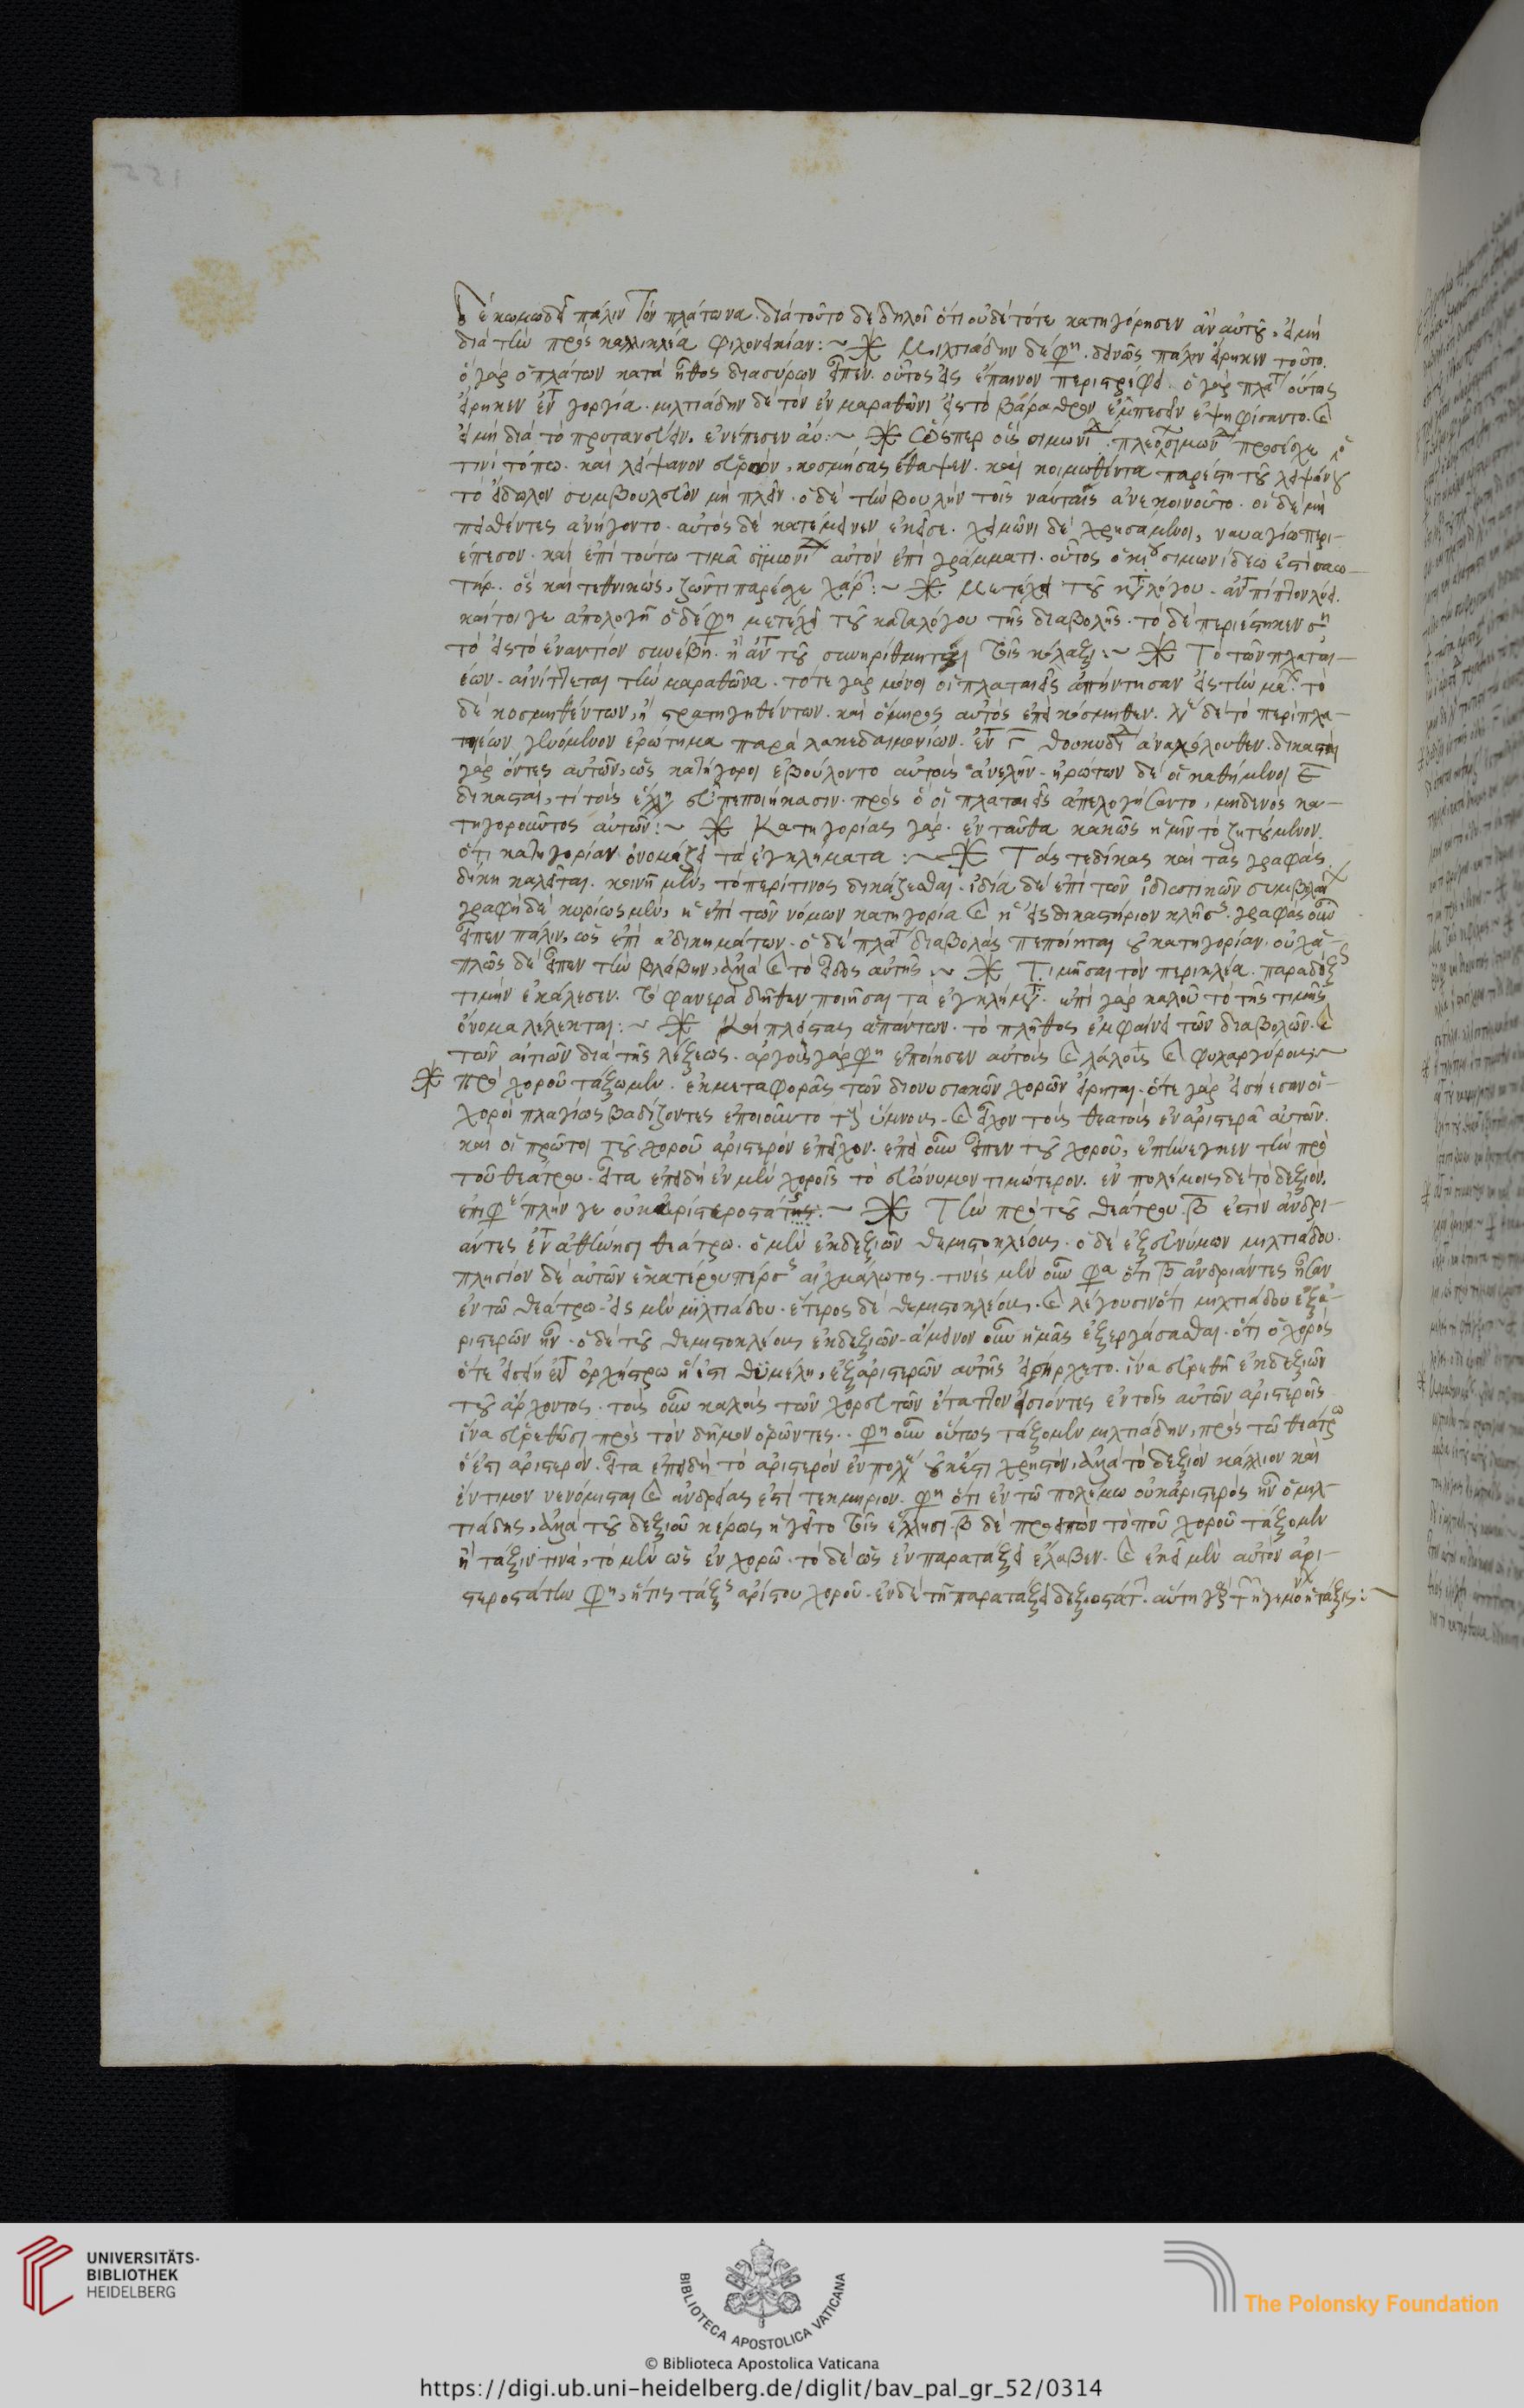 221
κωμωδεῖ πάλιν τὸν πλάτωνα. διὰ τοῦτο δὲ δηλοῖ ὅτι οὐδέ ποτε κατηγόρησεν ἂν αὐτοῦ, εἰ μὴ
διὰ τὴν πρὸς καλλικλέα φιλονεικίαν :~ ※ Μιλτιάδην δέ φη. δεινῶς πάλιν εἴρηκεν τοῦτο.
ὁ γὰρ ὁ πλάτων κατὰ ἦθος διασύρων εἶπεν. οὗτος εἰς ἔπαινον περιστρέφει. ὁ γὰρ πλατ οὕτως
εἴρηκεν ἐν γοργία. μιλτιάδην δὲ τὸν ἐν μαραθῶνι εἰς τὸ βάραθρον ἐμπεσεῖν ἐψηφίσαντο. καὶ
εἰ μὴ διὰ τὸ πρυτανεῖαν. ἐνέπεσεν ἄν :~ ※ Ὥσπερ οἷς σιμωνιδ. πλέων ὁ σιμωνιδ προσέσχε
τινὶ τόπω. καὶ λείψανον εὑρὼν, κοσμήσας ἔθαψεν. καὶ κοιμωθέντα παρέστη τοῦ λειψάνου
τὸ εἴδωλον συμβουλεῦον μὴ πλεῖν. ὁ δὲ τὴν βουλὴν τοῖς ναύταις ἀνεκοινοῦτο. οἱ δὲ μὴ
πειθέντες ἀνήγοντο. αὐτὸς δὲ κατέμεινεν ἐκεῖσε. χειμῶνι δὲ χρησάμενοι, ναυαγίω περι-
έπεσον. καὶ ἐπὶ τούτω τιμᾶ σιμωνιδ αὐτὸν ἐπιγράμματι. οὗτος ὁ κίου σιμωνίδεω ἐστὶ σαω-
τήρ. ὃς καὶ τεθνικὼς, ζῶντι παρέσχε χάρ :~ ※ Μετέχει τοῦ κατλόγου. ἀντιπίπτον λύει.
καίτοι γε ἀπολογῆ ὁ δέ φη μετέχει τοῦ καταλόγου τῆς διαβολῆς. τὸ δὲ περιέστηκεν
τὸ εἰς τὸ ἐναντίον συνέβη. ἢ ἀντ τοῦ συνηρίθμηται τοῖς κόλαξι :~ ※ Τὸ τῶν πλαται-
έων. αἰνίττεται τὴν μαραθῶνα. τότε γὰρ μόνοι οἱ πλαταιεῖς ἀπήντησαν εἰς τὴν μάχ. τὸ
δὲ κοσμηθέντων, ἢ στρατηγηθέντων. καὶ ὅμηρος αὐτὸς ἐπεὶ κόσμηθεν. λγ δὲ τὸ περὶ πλα-
ταιέων γενόμενον ἐρώτημα παρὰ λακεδαιμονίων. ἐν γ θουκυδιδ ἀνακόλουθον. δικασταὶ
γὰρ ὄντες αὐτῶν, ὡς κατήγοροι ἐβούλοντο αὐτοὺς ἀνελεῖν. ἠρώτων δὲ οἱ καθήμενοι ε
δικασταὶ, τί τοὺς ἕλλη εὖ πεποιήκασιν. πρὸς ὃ οἱ πλαταιεῖς ἀπελογήσαντο, μηδενὸς κα-
τηγοροῦντος αὐτῶν :~ ※ Κατηγορίας γάρ. ἐνταῦθα κακῶς ἡμῖν τὸ ζητούμενον.
ὅτι κατηγορίαν ὀνομάζει τὰ ἐγκλήματα :~ ※ Τάς τε δίκας καὶ τὰς γραφάς.
δίκη καλεῖται. κοινῆ μὲν, τὸ περί τινος δικάζεσθαι. ἰδία δὲ ἐπὶ τῶν ἰδιωτικῶν συμβολαι
γραφὴ δὲ κυρίως μὲν, ἡ ἐπὶ τῶν νόμων κατηγορία καὶ ἡ εἰς δικαστήριον κλῆσις. γραφὰς οὖν
εἶπεν πάλιν, ὡς ἐπὶ ἀδικημάτων. ὁ δὲ πλατ διαβολὰς πεποίηται οὐ κατηγορίαν. οὐχ ἁ-
πλῶς δὲ εἶπεν τὴν βλάβην, ἀλλὰ καὶ τὸ εἶδος αὐτῆς :~ ※ Τιμῆσαι τὸν περικλέα. παραδόξ
τιμὴν ἐκάλεσεν. τὸ φανερὰ δῆθεν ποιῆσαι τὰ ἐγκλήματ. ἐπὶ γὰρ καλοῦ τὸ τῆς τιμῆς
ὄνομα λέλεκται :~ ※ Καὶ πλείστας ἁπάντων. τὸ πλῆθος ἐμφαίνει τῶν διαβολῶν. καὶ
τῶν αἰτιῶν διὰ τῆς λέξεως. ἀργοὺς γάρ φη ἐποίησεν αὐτοὺς καὶ λάλους καὶ φιλαργύρους :~
※ πρὸ χοροῦ τάξωμεν. ἐκ μεταφορᾶς τῶν διονυσιακῶν χορῶν εἴρηται. ὅτε γὰρ εἰσήεσαν οἱ
χοροὶ πλαγίως βαδίζοντες ἐποιοῦντο τοὺς ὕμνους. καὶ εἶχον τοὺς θεατὰς ἐν ἀριστερᾶ αὐτῶν.
καὶ οἱ πρῶτοι τοῦ χοροῦ ἀριστερὸν ἐπεῖχον. ἐπεὶ οὖν εἶπεν τοῦ χοροῦ, ἐπήνεγκεν τὴν πρὸ
τοῦ θεάτρου. εἶτα ἐπειδὴ ἐν μὲν χοροῖς τὸ εὐώνυμον τιμώτερον. ἐν πολέμοις δὲ τὸ δεξιόν.
ἐπιφέ πλήν γε οὐκ ἀριστεροστάτης :~ ※ Τὴν πρὸ τοῦ θεάτρου. β ἐστὶν ἀνδρι-
άντες ἐν τ ἀθήνησι θεάτρω. ὁ μὲν ἐκ δεξιῶν θεμιστοκλέους. ὁ δὲ ἐξ εὐνύμων μιλτιάδου.
πλησίον δὲ αὐτῶν ἑκατέρου πέρσς αἰχμάλωτος. τινὲς μὲν οὖν φα ὅτι β ἀνδριάντες ἦσαν
ἐν τῶ θεάτρω. εἷς μὲν μιλτιάδου. ἕτερος δὲ θεμιστοκλέους. καὶ λέγουσιν ὅτι μιλτιάδου ἐξ ἀ-
ριστερῶν ἦν. ὁ δὲ τοῦ θεμιστοκλέους ἐκ δεξιῶν. ἄμεινον οὖν ἡμᾶς ἐξεργάσασθαι. ὅτι ὁ χορὸς
ὅτε εἰσῄει ἐν τ ὀρχήστρω ἥ ἐστι θυμέλη, ἐξ ἀριστερῶν αὐτῆς εἰσήρχετο. ἵνα εὑρεθῆ ἐκ δεξιῶν
τοῦ ἄρχοντος. τοὺς οὖν καλοὺς τῶν χορευτῶν ἔταττον εἰσιόντες ἐν τοῖς αὐτῶν ἀριστεροῖς
ἵνα εὑρεθῶσι πρὸς τὸν δῆμον ὁρῶντες. φη οὖν οὕτως τάξομεν μιλτιάδην, πρὸς τῶ θεάτρω
ὅ ἐστι ἀριστερόν. εἶτα ἐπειδὴ τὸ ἀριστερὸν ἐν πολέ οὐκ ἔστι χρηστὸν, ἀλλὰ τὸ δεξιὸν κάλλιον καὶ
ἔντιμον νενόμισται καὶ ἀνδρείας ἐστὶ τεκμηριον. φη ὅτι ἐν τῶ πολέμω οὐκ ἀριστερὸς ἦν ὁ μιλ-
τιάδης, ἀλλὰ τοῦ δεξιοῦ κέρως ἡγεῖτο τοῖς ἕλλησι. β δὲ προειπὼν τὸ ποῦ χοροῦ τάξομεν
ἢ τάξιν τινὰ, τὸ μὲν ὡς ἐν χορῶ. τὸ δὲ ὡς ἐν παρατάξει ἔλαβεν. καὶ ἐκεῖ μὲν αὐτὸν ἀρι-
στεροστάτην φη, ἥτις τάξς ἀρίστου χοροῦ. ἐν δὲ τῆ παρατάξει δεξιοστάτ. αὕτη γὰρ ἡ ἡγεμονικὴ τάξις :~
UNIVERSITÄTS-
BIBLIOTHEK
HEIDELBERG
BIBLIOTECA APOSTOLICA VATICANA
The Polonsky Foundation
© Biblioteca Apostolica Vaticana
https://digi.ub.uni-heidelberg.de/diglit/bav_pal_gr_52/0314